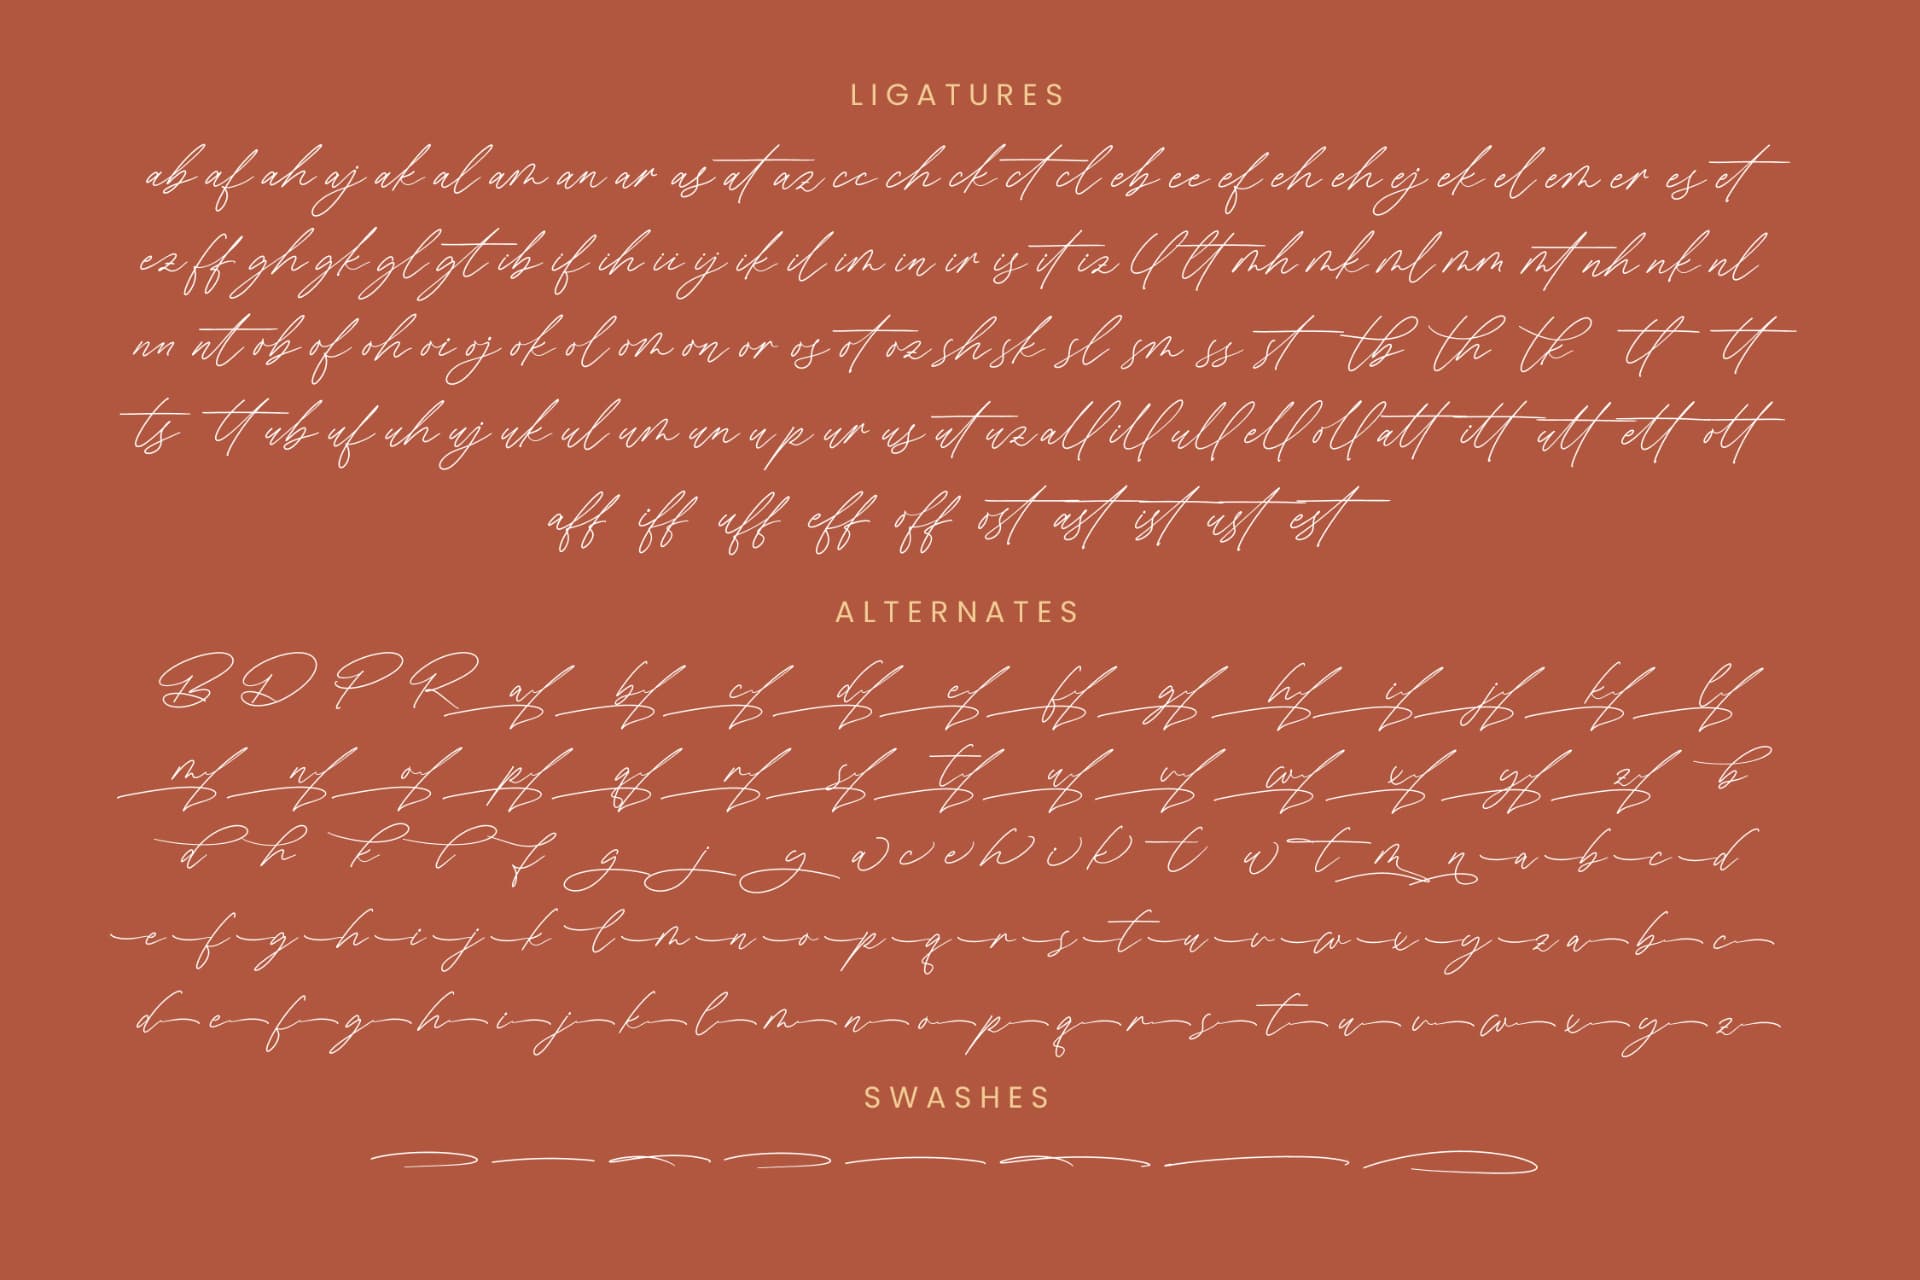 LIGATURES
ab af ah aj ak al am an ar as at az cc ch ck ct cl eb ee ef eh eh ej ek el em er es et
ez ff gh gk gl gt ib if ih ii ij ik il im in ir is it iz ll lt mh mk ml mm mt nh nk nl
nn nt ob of oh oi oj ok ol om on or os ot oz sh sk sl sm ss st tb th tk tl tt
ts tt ub uf uh uj uk ul um un up ur us ut uz all ill ull ell oll att itt utt ett ott
aff iff uff eff off ost ast ist ust est
ALTERNATES
B D P R a b c d e f g h i j k l
m n o p q r s t u v w x y z b
d h k l f g j y a c e h i k t u t m n a b c d
e f g h i j k l m n o p q r s t u v w x y z a b c
d e f g h i j k l m n o p q r s t u v w x y z
SWASHES